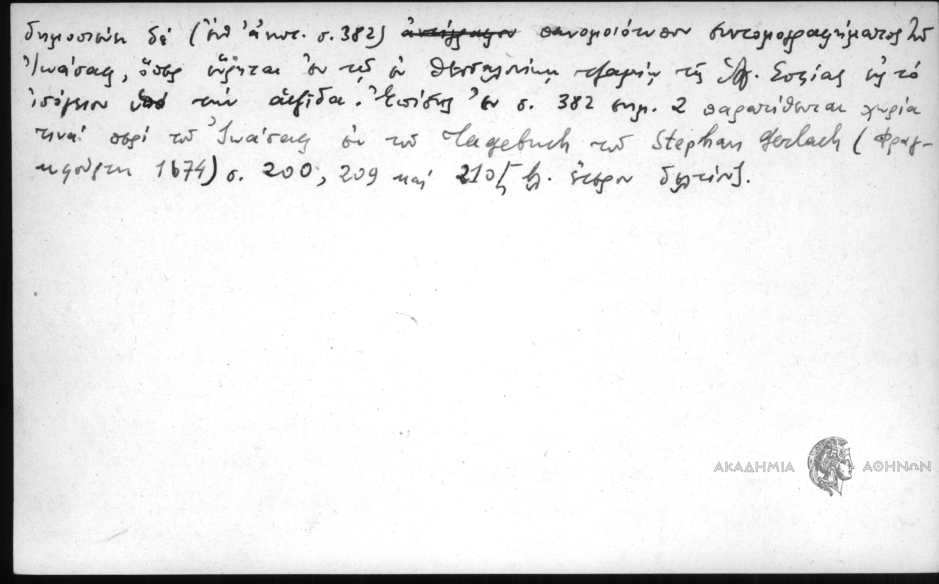 δημοσιεύει δέ (ἔνθ' ἀνωτ. σ. 382) ἀντίγραφον πανομοιότυπον συντομογραφήματος τοῦ
Ἰωάσαφ, ὅπερ εὕρηται ἐν τῷ ἐν Θεσσαλονίκῃ τζαμίῳ τῆς Ἁγ. Σοφίας εἰς τό
ἰσόγειον ὑπό τήν ἁψῖδα. Ἐπίσης ἐν σ. 382 σημ. 2 παρατίθενται χωρία
τινά περί τοῦ Ἰωάσαφ ἐκ τοῦ Tagebuch τοῦ Stephan Gerlach (Φραγ-
κφούρτη 1674) σ. 200, 209 καί 210 [βλ. ἕτερον δελτίον].
ΑΚΑΔΗΜΙΑ ΑΘΗΝΩΝ